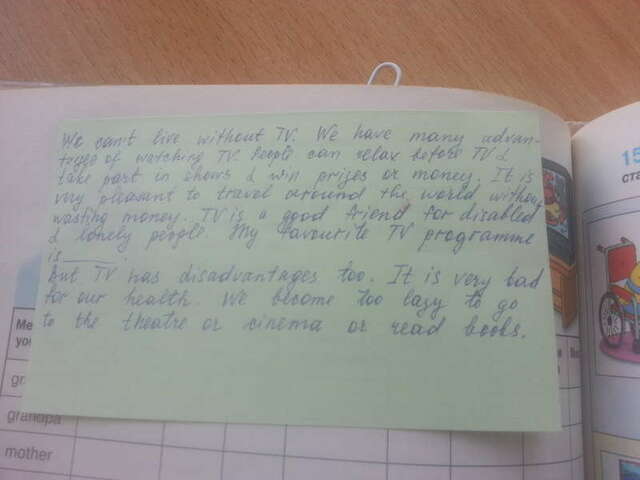 We can't live without TV. We have many advan-
tages of watching TV. People can relax before TV &
take part in shows & win prizes or money. It is
very pleasant to travel around the world without
wasting money. TV is a good friend for disabled
& lonely people. My favourite TV programme
is______.
But TV has disadvantages too. It is very bad
for our health. We become too lazy to go
to the theatre or cinema or read books.
Me
you
gr
grandpa
mother
15